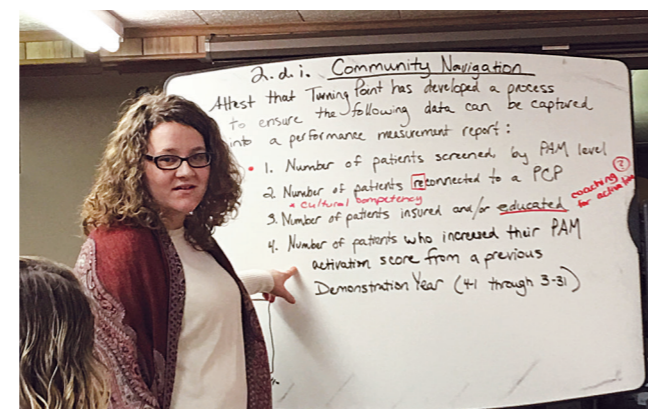 2.d.i. Community Navigation
Attest that Turning Point has developed a process
to ensure the following data can be captured
into a performance measurement report:
• 1. Number of patients screened, by PAM level
2. Number of patients reconnected to a PCP
a cultural competency
3. Number of patients insured and/or educated coaching ?
for activation
4. Number of patients who increased their PAM
activation score from a previous
Demonstration Year (4-1 through 3-31)